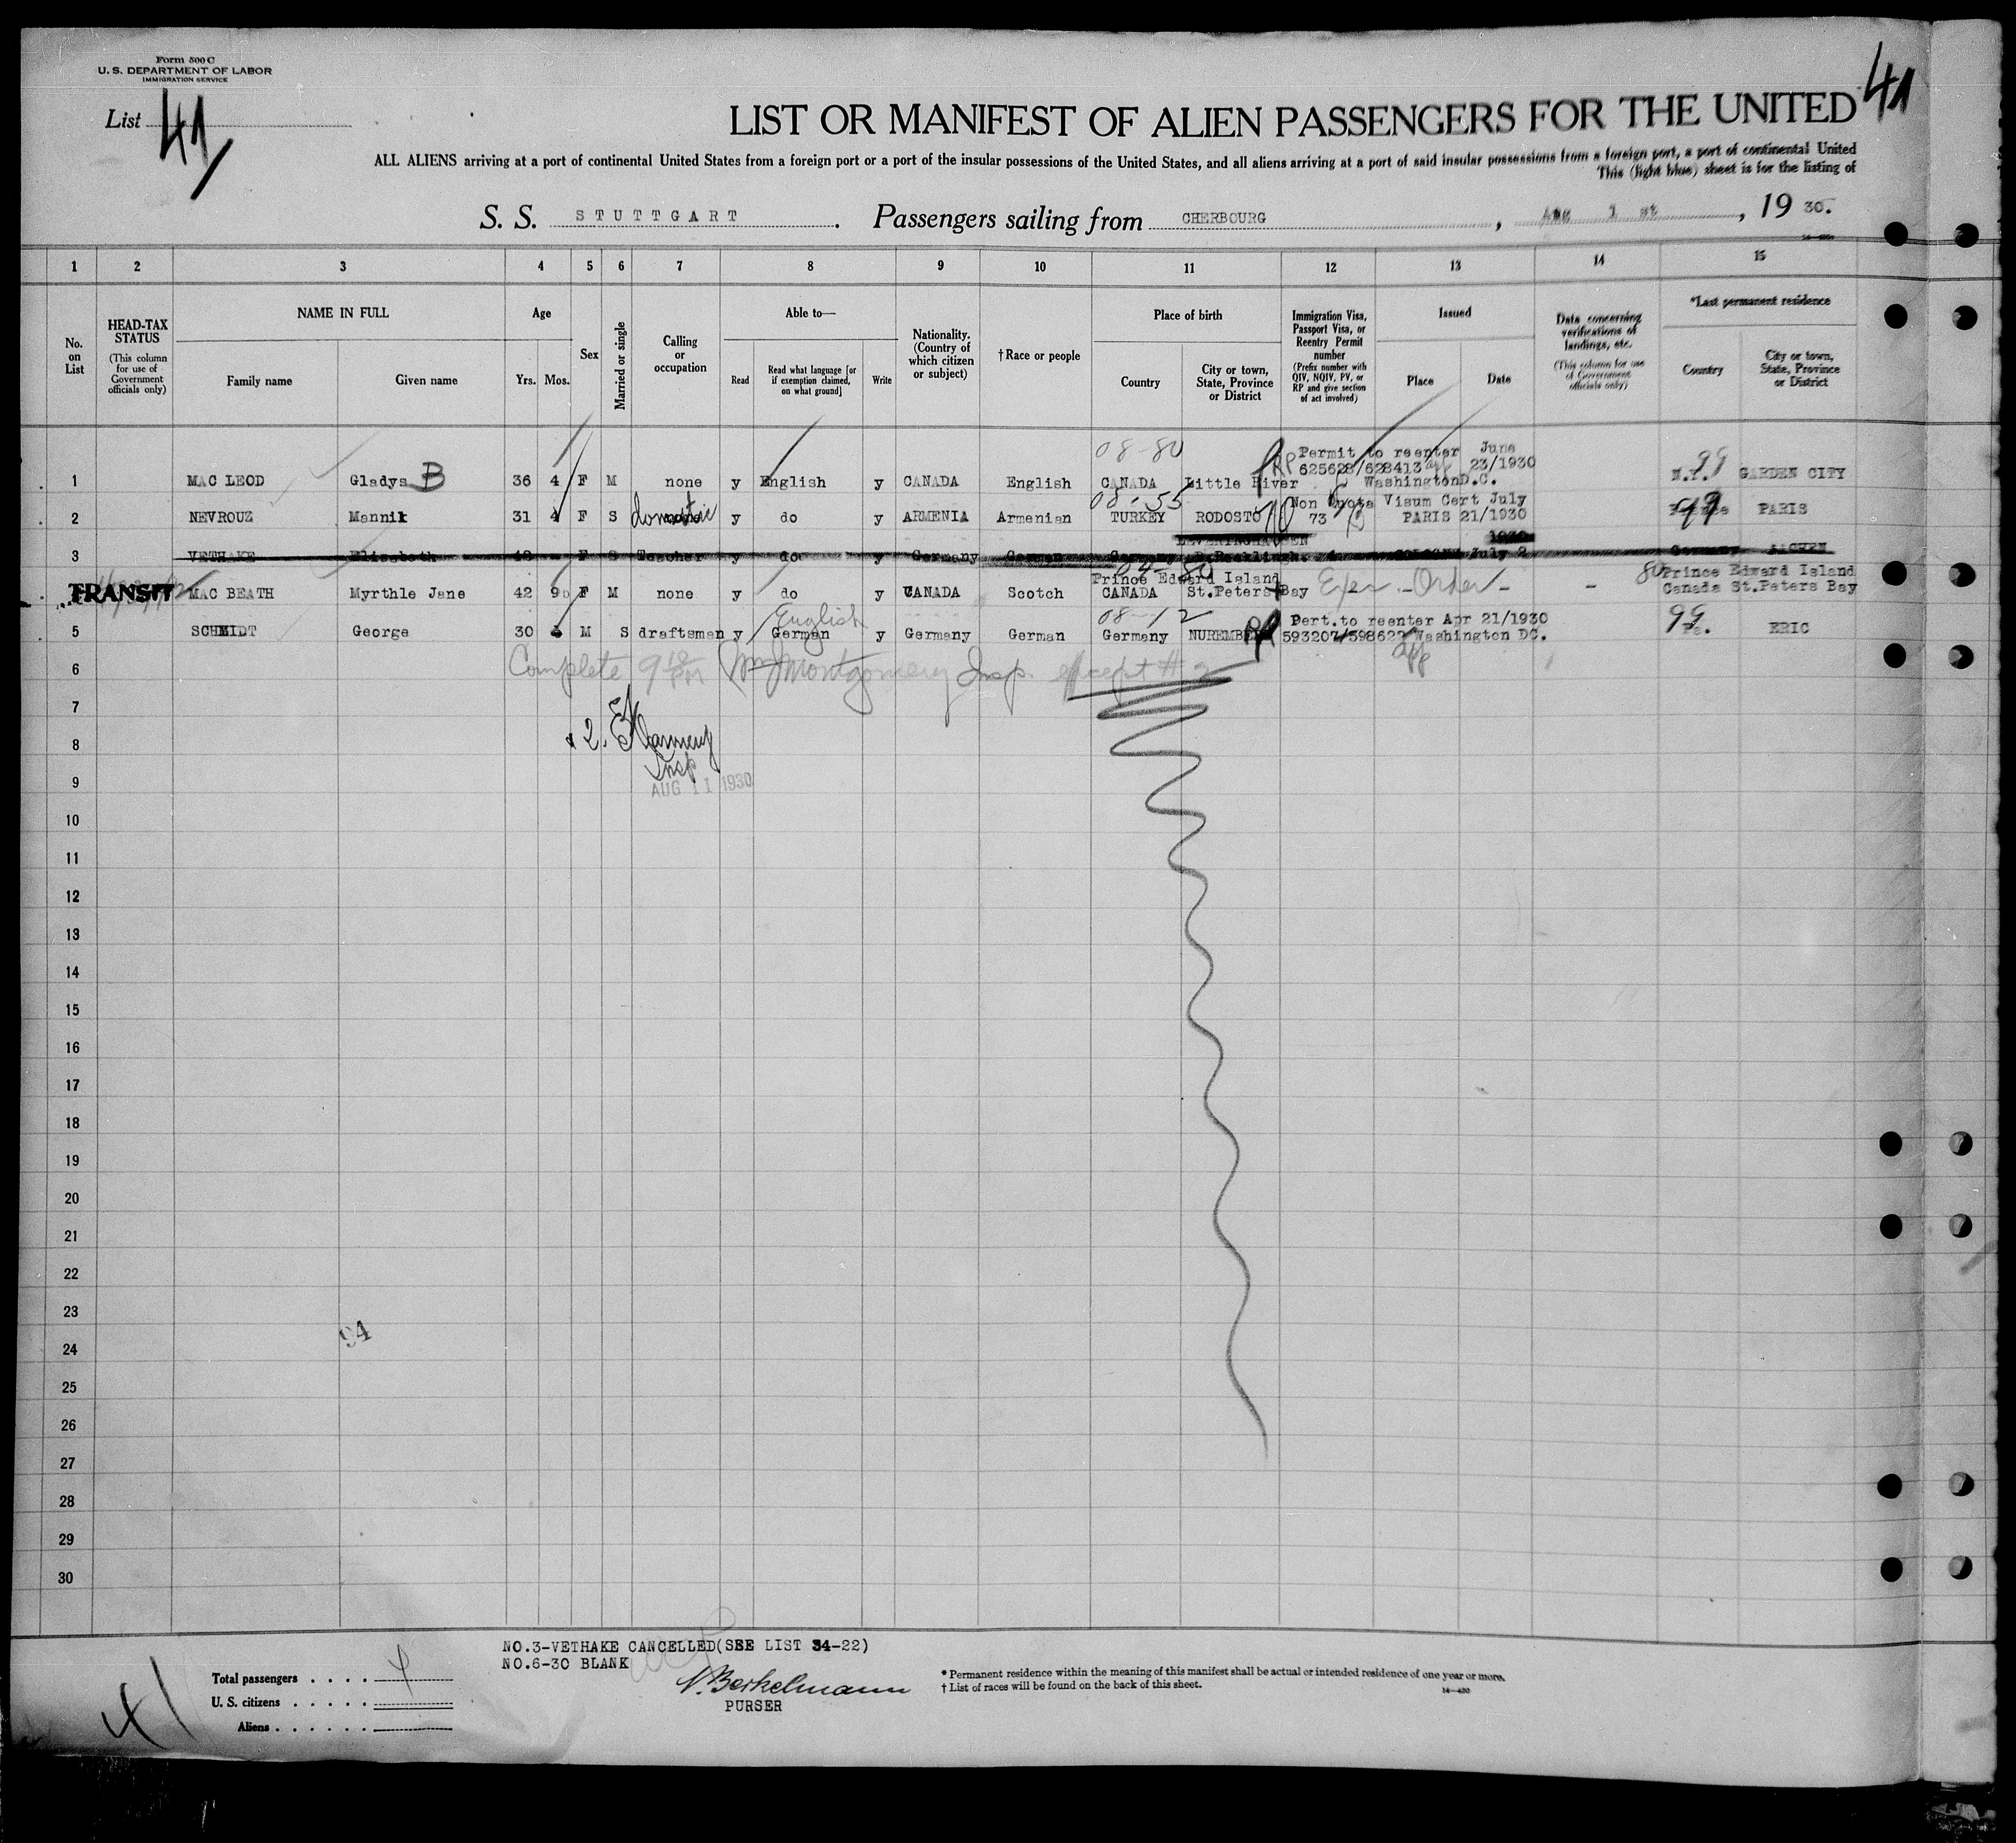 Form 500 C
U. S. DEPARTMENT OF LABOR
IMMIGRATION SERVICE
List 41
41
LIST OR MANIFEST OF ALIEN PASSENGERS FOR THE UNITED
ALL ALIENS arriving at a port of continental United States from a foreign port or a port of the insular possessions of the United States, and all aliens arriving at a port of said insular possessions from a foreign port, a port of continental United
This (light blue) sheet is for the listing of
S. S. STUTTGART. Passengers sailing from CHERBOURG, Aug 1 st, 19 30.
1 2 3 4 5 6 7 8 9 10 11 12 13 14 15
No. on List
HEAD-TAX STATUS
(This column for use of Government officials only)
NAME IN FULL
Family name
Given name
Age
Yrs. Mos.
Sex
Married or single
Calling or occupation
Able to—
Read
Read what language [or if exemption claimed, on what ground]
Write
Nationality. (Country of which citizen or subject)
†Race or people
Place of birth
Country
City or town, State, Province or District
Immigration Visa, Passport Visa, or Reentry Permit number
(Prefix number with QIV, NQIV, PV, or RP and give section of act involved)
Issued
Place
Date
Data concerning verifications of landings, etc.
(This column for use of Government officials only)
*Last permanent residence
Country
City or town, State, Province or District
08-80 Permit to reenter June
RP 625628/628413 23/1930 99
1 MAC LEOD Gladys B 36 4 F M none y English y CANADA English CANADA Little River Washington D.C. N.Y. GARDEN CITY
08-55 Non Quota Visum Cert July
2 NEVROUZ Mannik 31 4 F S domestic y do y ARMENIA Armenian TURKEY RODOSTO 73 PARIS 21/1930 99 PARIS
1930
3 VETHAKE Elisabeth F S Teacher y do y Germany German Germany July 2 Germany AACHEN
04-80
Prince Edward Island 80 Prince Edward Island
TRANSIT MAC BEATH Myrthle Jane 42 9 F M none y do y CANADA Scotch CANADA St.Peters Bay Exec - Order - - Canada St.Peters Bay
English 08-12 Pert.to reenter Apr 21/1930 99
5 SCHMIDT George 30 M S draftsman y German y Germany German Germany NUREMBERG 593207/598622 Washington DC. Pa. ERIC
6 Complete 9 10 PM Wm J Montgomery Insp. except # 2
7
8 2.
Insp
9 AUG 11 1930
10
11
12
13
14
15
16
17
18
19
20
21
22
23
94
24
25
26
27
28
29
30
NO.3-VETHAKE CANCELLED(SEE LIST 34-22)
NO.6-30 BLANK
Total passengers . . . . 4
U. S. citizens . . . .
Aliens . . . . . .
41
N. Berkelmann
PURSER
* Permanent residence within the meaning of this manifest shall be actual or intended residence of one year or more.
† List of races will be found on the back of this sheet.